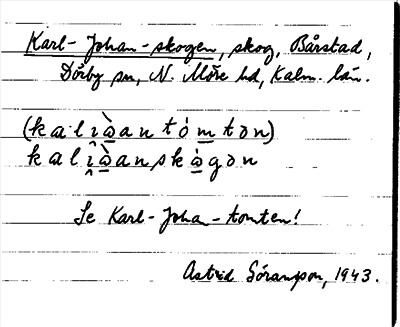 Karl-Johan-skogen, skog, Bårstad,
Dörby sn, N. Möre hd, Kalm. län.
(kaliàantómtən)
kaliàanskògən
Se Karl-Joha-tomten!
Astrid Göransson, 1943.